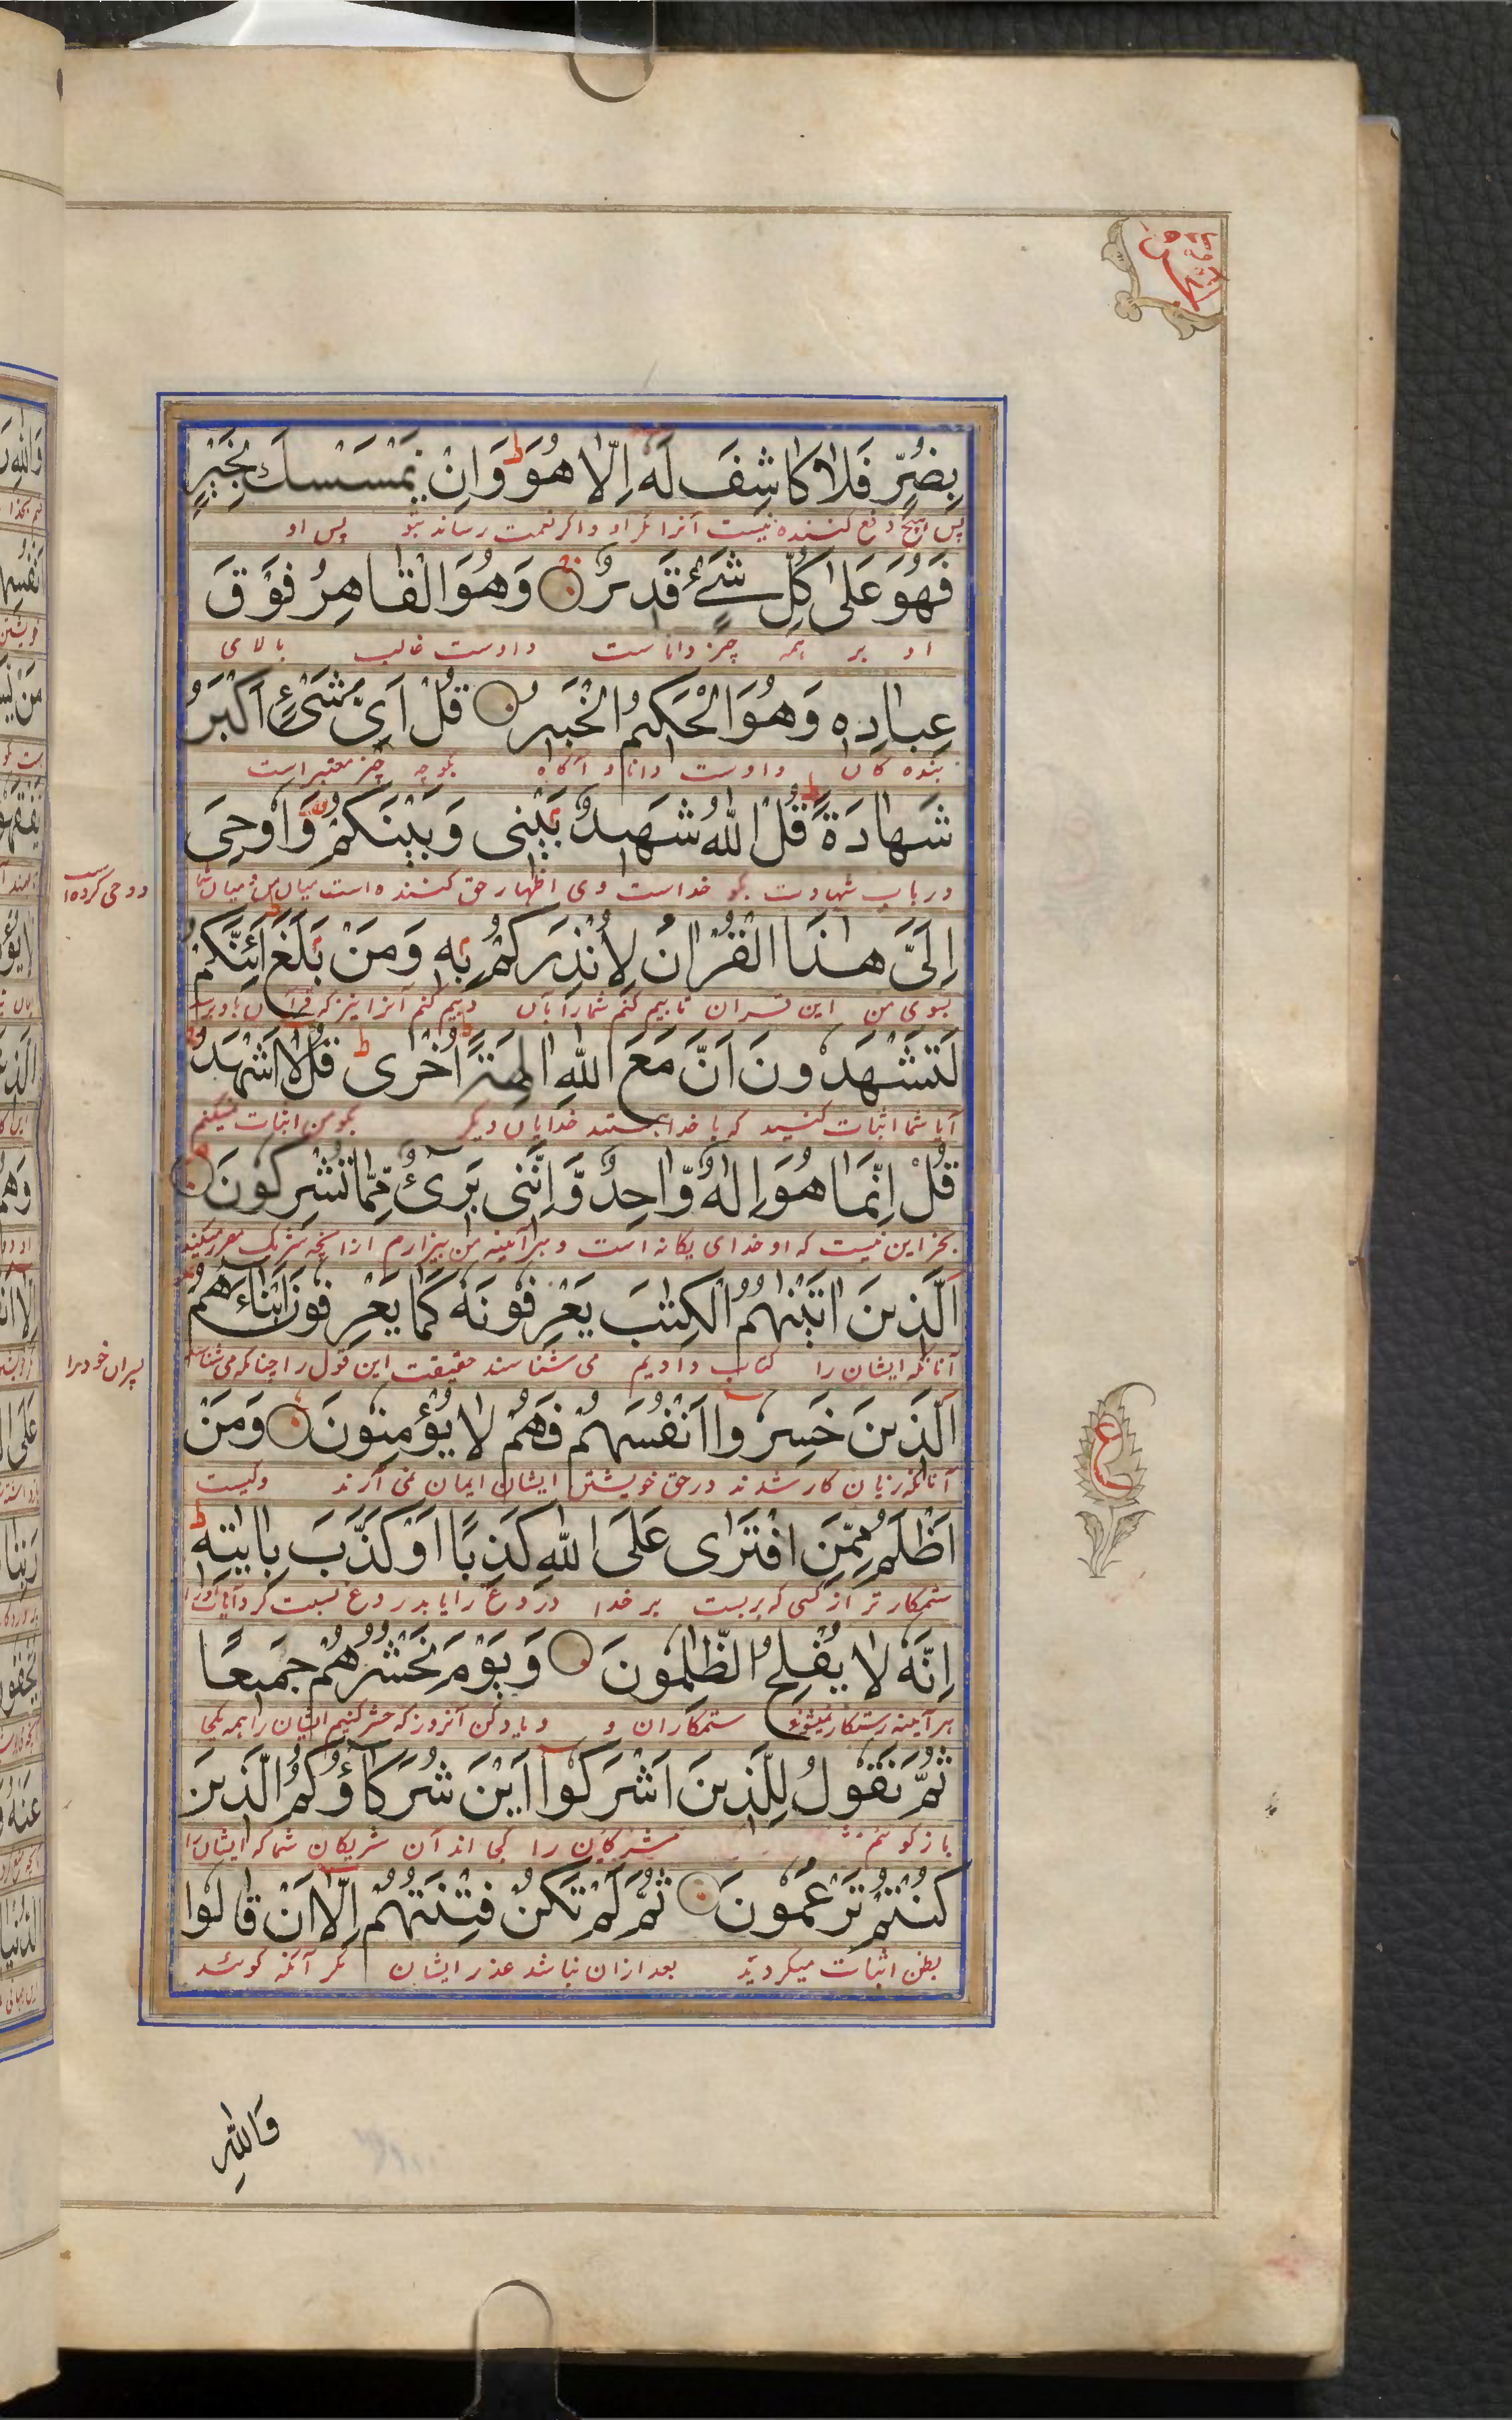 بِضُرٍّ فَلَا كَاشِفَ لَهٗ اِلَّا هُوَ ط وَاِنْ يَمْسَسْكَ بِخَيْرٍ
پس هیچ دفع کننده نیست آنرا مگر او و اگر نعمت رساند بتو پس او
فَهُوَ عَلٰى كُلِّ شَيْءٍ قَدِيرٌ وَهُوَ الْقَاهِرُ فَوْقَ
او بر همه چیز تواناست و اوست غالب بالای
عِبَادِهٖ وَهُوَ الْحَكِيمُ الْخَبِيرُ قُلْ اَيُّ شَيْءٍ اَكْبَرُ
بنده گان و اوست دانا و آگاه بگو چه چیز معتبر است
شَهَادَةً ط قُلِ اللّٰهُ شَهِيدٌ بَيْنِي وَبَيْنَكُمْ وَاُوحِيَ
در باب شهادت بگو خداست وی اظهار حق کننده است میان من و میان شما
و وحی کرده است
اِلَيَّ هٰذَا الْقُرْاٰنُ لِاُنْذِرَكُمْ بِهٖ وَمَنْ بَلَغَ اَئِنَّكُمْ
بسوی من این قران تا بیم کنم شمارا بآن و بیم کنم آنرا نیز که قرآن باو برسد
لَتَشْهَدُونَ اَنَّ مَعَ اللّٰهِ اٰلِهَةً اُخْرٰى ط قُلْ لَا اَشْهَدُ
آیا شما اثبات کنید که با خدا هستند خدایان دیگر بگو من اثبات نمیکنم
قُلْ اِنَّمَا هُوَ اِلٰهٌ وَّاحِدٌ وَّاِنَّنِي بَرِيْءٌ مِّمَّا تُشْرِكُونَ
بجز این نیست که او خدای یگانه است و هر آئینه من بیزارم از آنچه شریک مقرر میکنید
اَلَّذِينَ اٰتَيْنٰهُمُ الْكِتٰبَ يَعْرِفُونَهٗ كَمَا يَعْرِفُونَ اَبْنَاءَهُمْ
آنانکه ایشان را کتاب دادیم می شناسند حقیقت این قول را چنانکه می شناسند
پسران خود را
اَلَّذِينَ خَسِرُوا اَنْفُسَهُمْ فَهُمْ لَا يُؤْمِنُونَ وَمَنْ
آنانکه زیان کار شدند در حق خویشتن ایشان ایمان نمی آرند و کیست
اَظْلَمُ مِمَّنِ افْتَرٰى عَلَى اللّٰهِ كَذِبًا اَوْ كَذَّبَ بِاٰيٰتِهٖ ط
ستمکار تر از کسی که بربست بر خدا دروغ را یا بدروغ نسبت کرد آیات اورا
اِنَّهٗ لَا يُفْلِحُ الظّٰلِمُونَ وَيَوْمَ نَحْشُرُهُمْ جَمِيعًا
هر آینه رستگار نمیشوند ستمکاران و و یاد کن آنروز که حشر کنیم ایشان را همه یکجا
ثُمَّ نَقُولُ لِلَّذِينَ اَشْرَكُوا اَيْنَ شُرَكَاؤُكُمُ الَّذِينَ
باز گوئیم مشرکان را کجا اند آن شریکان شما که ایشان را
كُنْتُمْ تَزْعُمُونَ ثُمَّ لَمْ تَكُنْ فِتْنَتُهُمْ اِلَّا اَنْ قَالُوا
بظن اثبات میکردید بعد ازان نباشد عذر ایشان مگر آنکه گویند
وَاللّٰهِ
ع